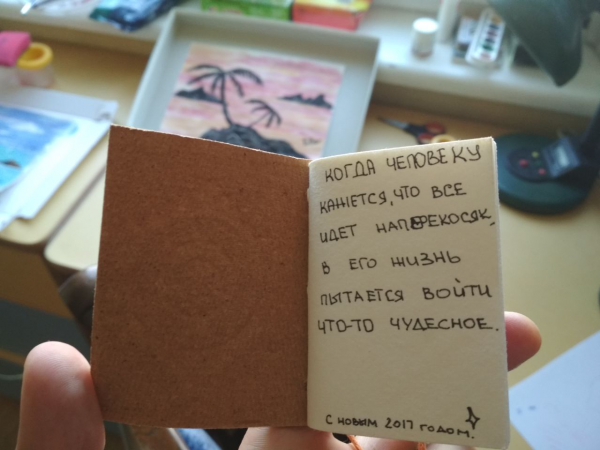 КОГДА ЧЕЛОВЕКУ
КАЖЕТСЯ, ЧТО ВСЕ
ИДЕТ НАПЕРЕКОСЯК,
В ЕГО ЖИЗНЬ
ПЫТАЕТСЯ ВОЙТИ
ЧТО-ТО ЧУДЕСНОЕ.
С НОВЫМ 2017 ГОДОМ.